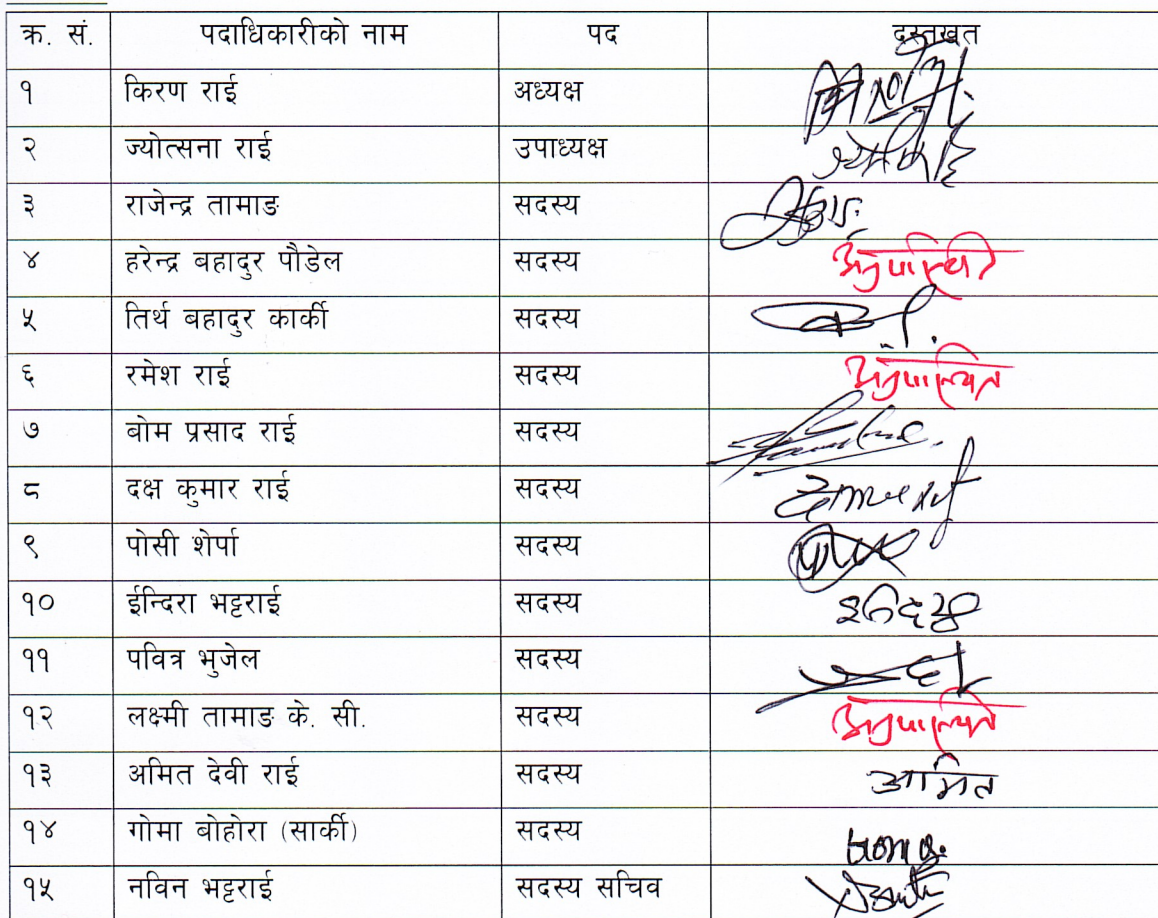 क्र. सं. पदाधिकारीको नाम पद दस्तखत
१ किरण राई अध्यक्ष
२ ज्योत्सना राई उपाध्यक्ष
३ राजेन्द्र तामाङ सदस्य
४ हरेन्द्र बहादुर पौडेल सदस्य अनुपस्थित
५ तिर्थ बहादुर कार्की सदस्य
६ रमेश राई सदस्य अनुपस्थित
७ बोम प्रसाद राई सदस्य
८ दक्ष कुमार राई सदस्य
९ पोसी शेर्पा सदस्य
१० ईन्दिरा भट्टराई सदस्य
११ पवित्र भुजेल सदस्य
१२ लक्ष्मी तामाङ के. सी. सदस्य अनुपस्थित
१३ अमित देवी राई सदस्य अमित
१४ गोमा बोहोरा (सार्की) सदस्य
१५ नविन भट्टराई सदस्य सचिव